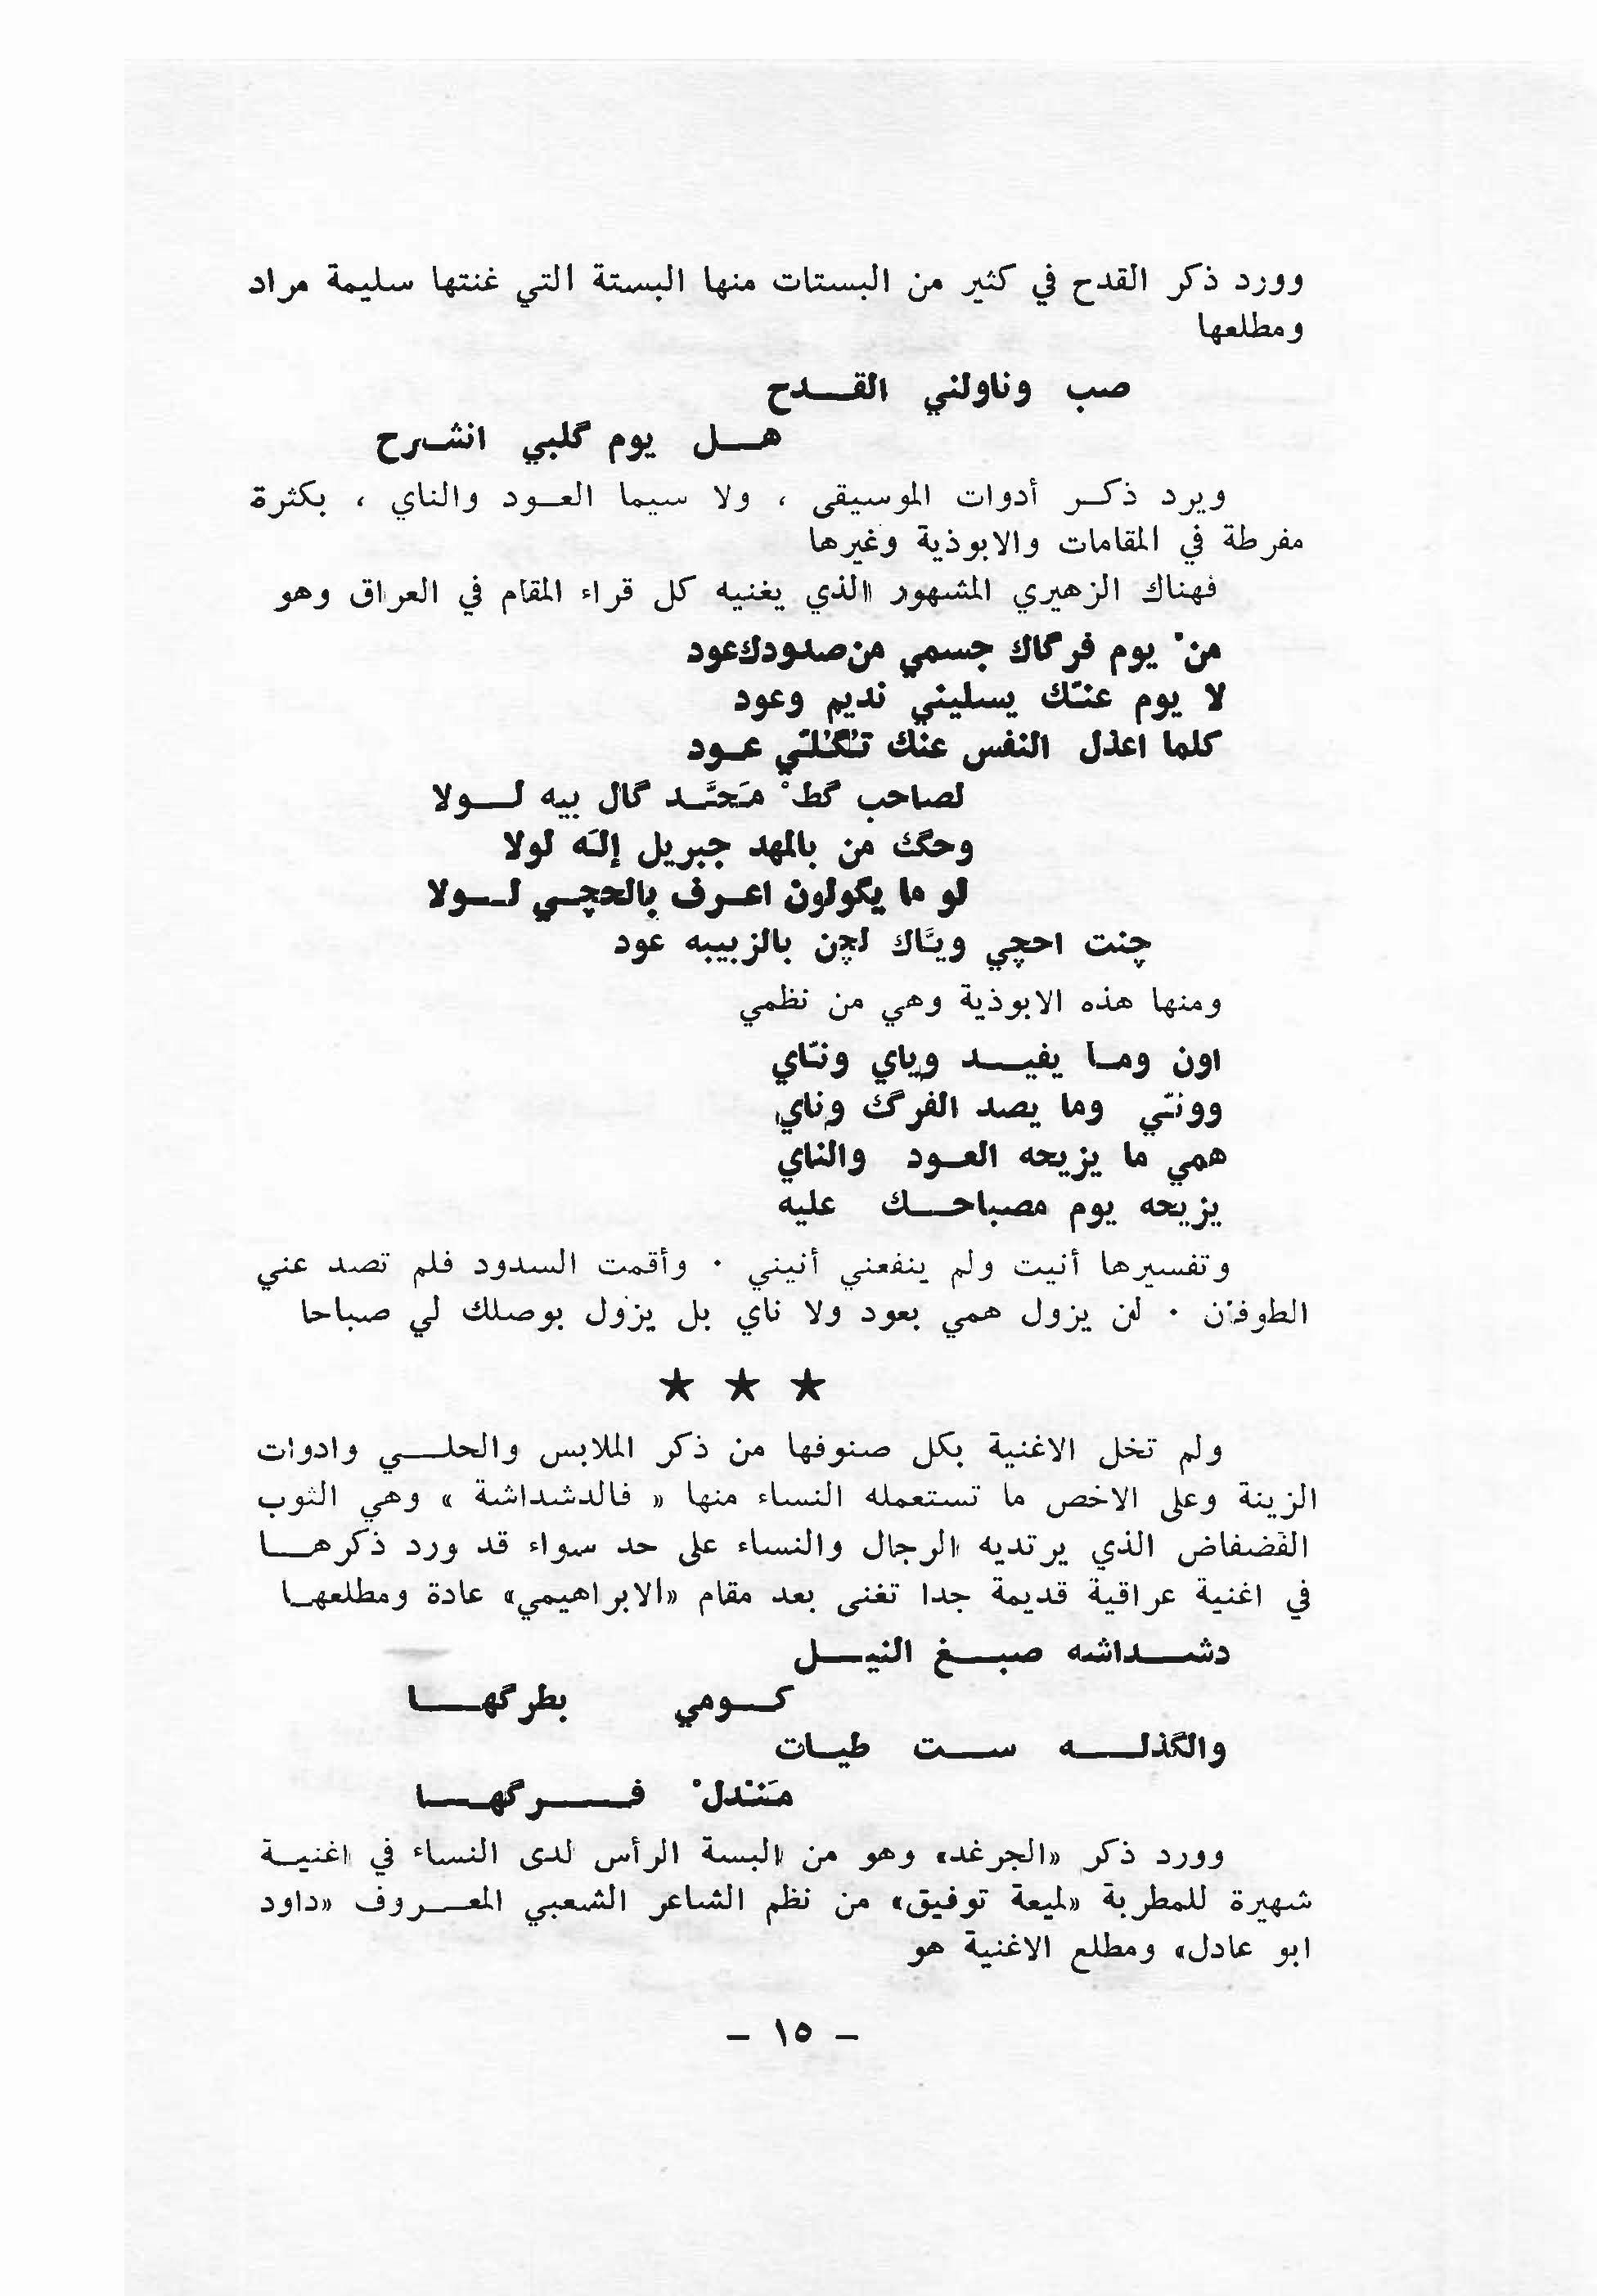 وورد ذكر القدح في كثير من البستات منها البستة التي غنتها سليمة مراد
ومطلعها
صب وناولني القــدح
هــل يوم گلبي انشــرح
ويرد ذكــر أدوات الموسيقى ، ولا سيما العــود والناي ، بكثرة
مفرطة في المقامات والابوذية وغيرها
فهناك الزهيري المشهور الذي يغنيه كل قراء المقام في العراق وهو
منْ يوم فرگاك جسمي من صدودك عود
لا يوم عنّك يسليني نديم وعود
كلما اعذل النفس عنك تگلّي عــود
لصاحب گطْ مَحَّــد گال بيه لــولا
وحگك من بالمهد جبريل إلَه لولا
لو ما يگولون اعــرف بالحچــي لــولا
چنت احچي ويَّاك لچن بالزبيبه عود
ومنها هذه الابوذية وهي من نظمي
اون ومــا يفيــد وياي ونّاي
وونّي وما يصد الفرگ وناي
همي ما يزيحه العــود والناي
يزيحه يوم مصباحــك عليه
وتفسيرها أنيت ولم ينفعني أنيني ٠ وأقمت السدود فلم تصد عني
الطوفان ٠ لن يزول همي بعود ولا ناي بل يزول بوصلك لي صباحا
★ ★ ★
ولم تخل الاغنية بكل صنوفها من ذكر الملابس والحلــي وادوات
الزينة وعلى الاخص ما تستعمله النساء منها « فالدشداشة » وهي الثوب
الفضفاض الذي يرتديه الرجال والنساء على حد سواء قد ورد ذكرهــا
في اغنية عراقية قديمة جدا تغنى بعد مقام «الابراهيمي» عادة ومطلعهــا
دشــداشه صبــغ النيــل
كــومي بطرگهــا
والگذلــه ســت طيــات
مَنْدلْ فــرگهــا
وورد ذكر «الجرغد» وهو من البسة الرأس لدى النساء في اغنيــة
شهيرة للمطربة «لميعة توفيق» من نظم الشاعر الشعبي المعــروف «داود
ابو عادل» ومطلع الاغنية هو
– ١٥ –